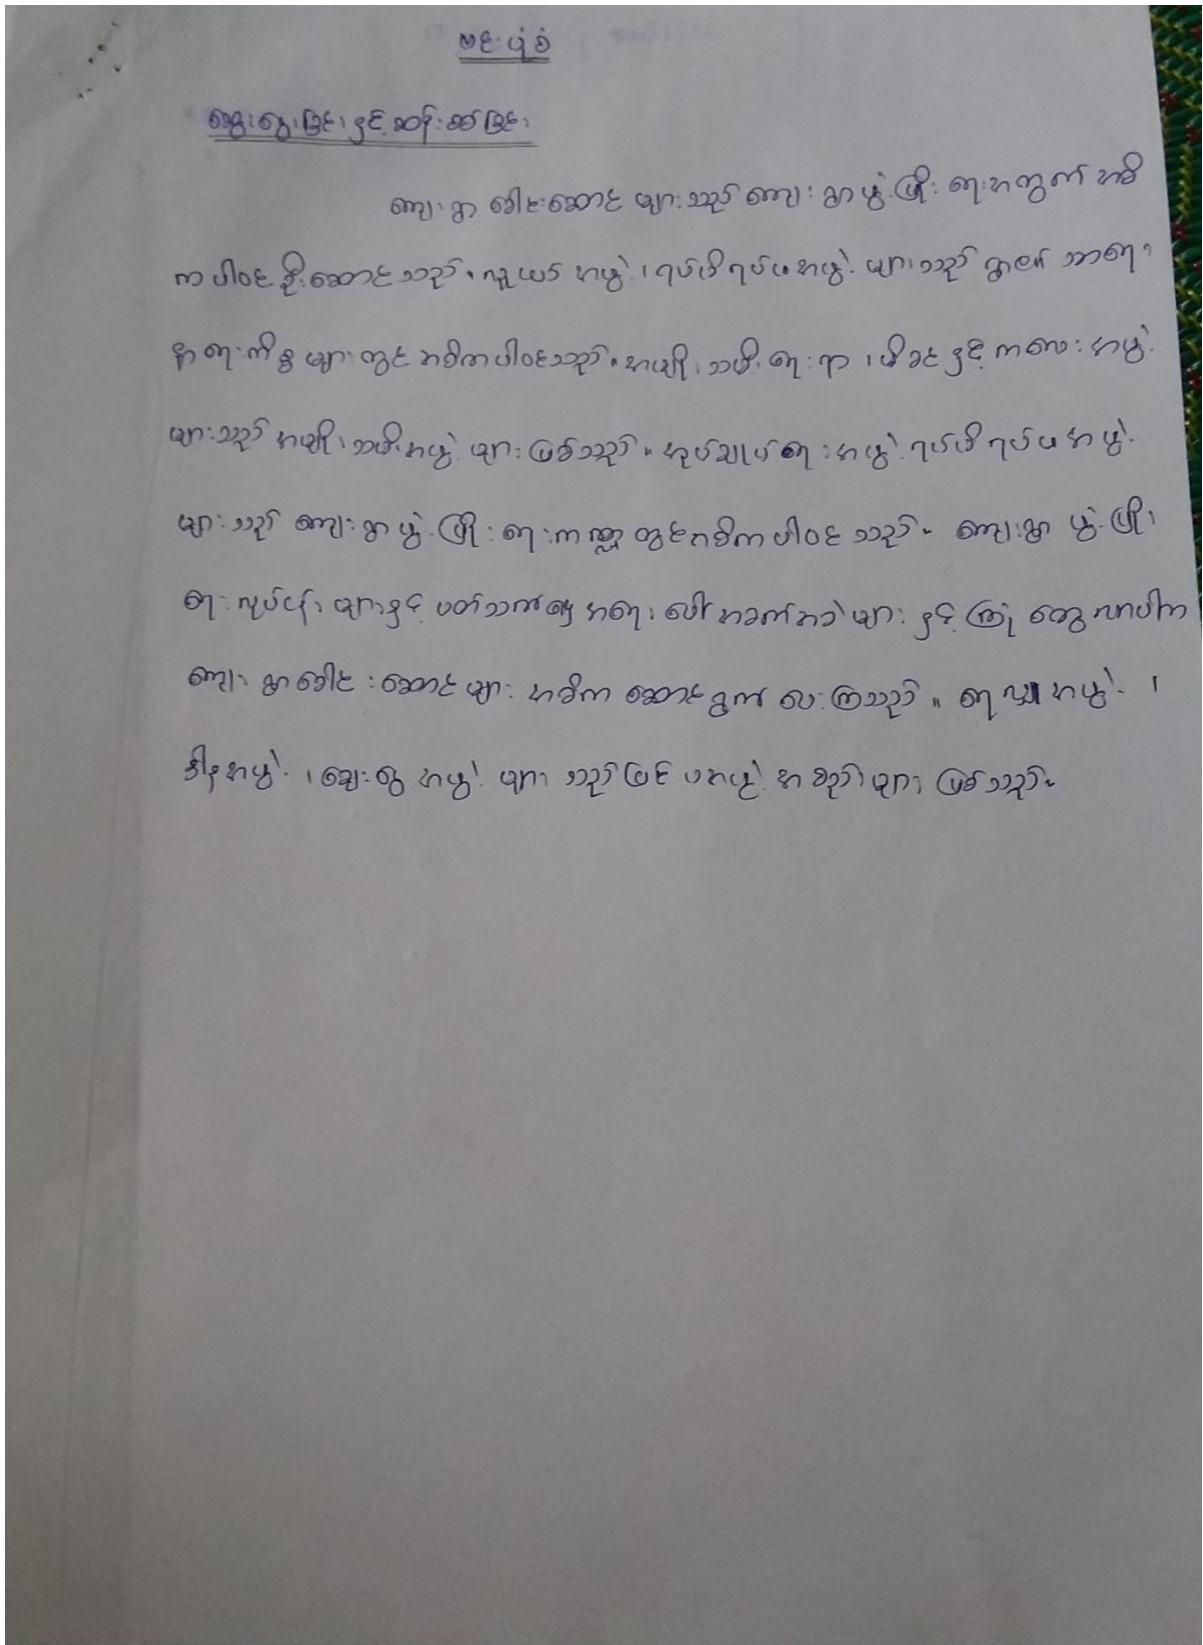 ဗင်းပုံစံ
ဆွေးနွေးခြင်းနှင့်ဆန်းစစ်ခြင်း
ကျေးရွာ ခေါင်းဆောင် များသည် ကျေးရွာဖွံ့ဖြိုး ရေးအတွက် အဓိ
က ပါဝင် ဦးဆောင်သည်။ လူငယ် အဖွဲ့၊ ရပ်မိရပ်ဖအဖွဲ့ များသည် ရွာ၏ သာရေး
နာရေးကိစ္စ များတွင် အဓိကပါဝင်သည်။ အမျိုးသမီးရေးရာ ၊ မိခင်နှင့် ကလေး အဖွဲ့
များသည် အမျိုးသမီးအဖွဲ့ များ ဖြစ်သည်။ အုပ်ချုပ်ရေးအဖွဲ့ ရပ်မိရပ်ဖအဖွဲ့
များသည် ကျေးရွာဖွံ့ဖြိုးရေးကဏ္ဍတွင်အဓိကပါဝင်သည်။ ကျေးရွာ ဖွံ့ဖြိုး
ရေးလုပ်ငန်းများနှင့် ပတ်သက်၍ အရေးပေါ် အခက်အခဲများ နှင့် ကြုံတွေ့လာပါက
ကျေးရွာခေါင်းဆောင်များ အဓိက ဆောင်ရွက် ပေးကြသည်။ ရေလျှံအဖွဲ့ ၊
ဒါနအဖွဲ့ ၊ ချေးငွေ အဖွဲ့ များ သည် ပြင်ပအဖွဲ့ အစည်းများ ဖြစ်သည်။